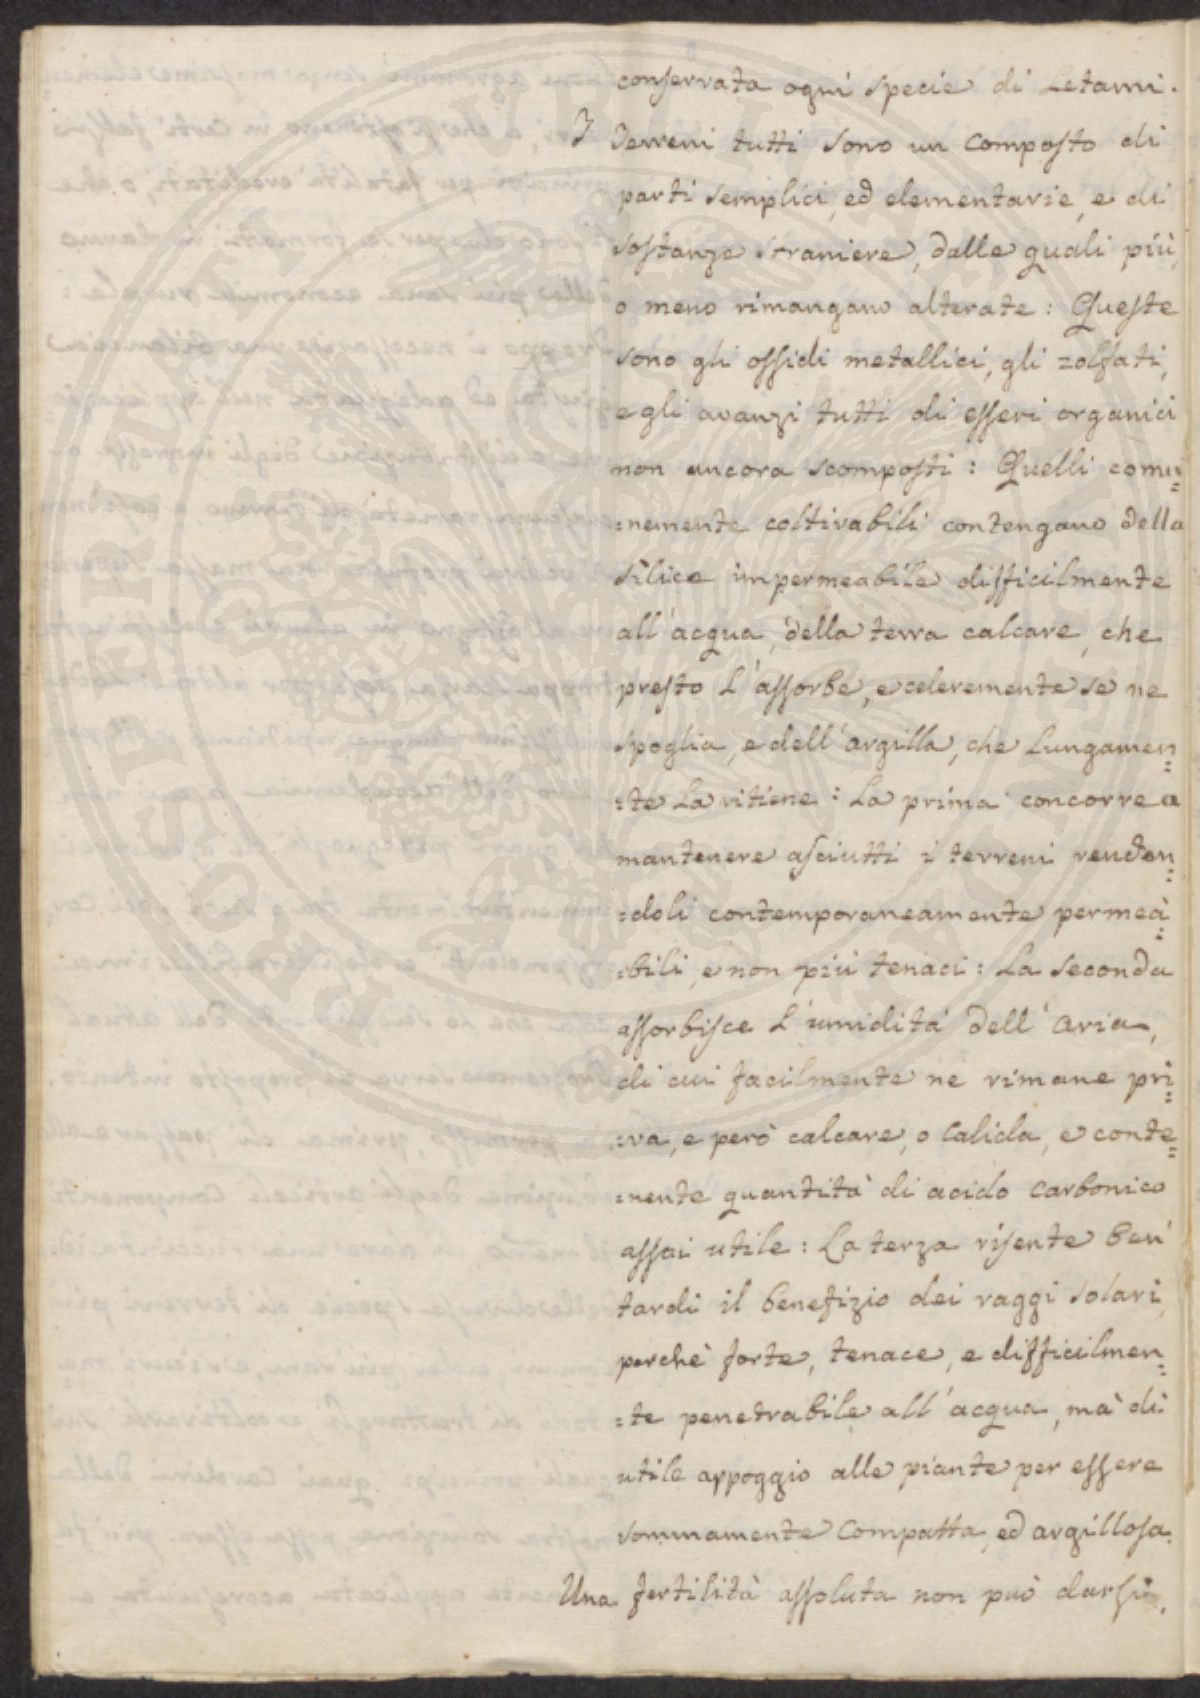 conservata ogni specie di Letami.
I Terreni tutti sono un composto di
parti semplici, ed elementarie, e di
sostanze straniere, dalle quali più,
o meno rimangano alterate: Queste
sono gli ossidi metallici, gli zolfati,
e gli avanzi tutti di esseri organici
non ancora scomposti: Quelli comu=
=nemente coltivabili contengano della
silice impermeabile difficilmente
all'acqua, della terra calcare, che
presto l'assorbe, e celeremente se ne
spoglia, e dell'argilla, che Lungamen=
=te La ritiene: La prima concorre a
mantenere asciutti i terreni renden=
=doli contemporaneamente permea=
=bili, e non più tenaci: La seconda
assorbisce L'umidità dell'aria,
di cui facilmente ne rimane pri=
=va, e però calcare, o calida, e conte=
=nente quantità di acido carbonico
assai utile: La terza risente ben'
tardi il benefizio dei raggi solari,
perchè forte, tenace, e difficilmen=
=te penetrabile all'acqua, mà di
utile appoggio alle piante per essere
sommamente compatta, ed argillosa.
Una fertilità assoluta non può darsi,